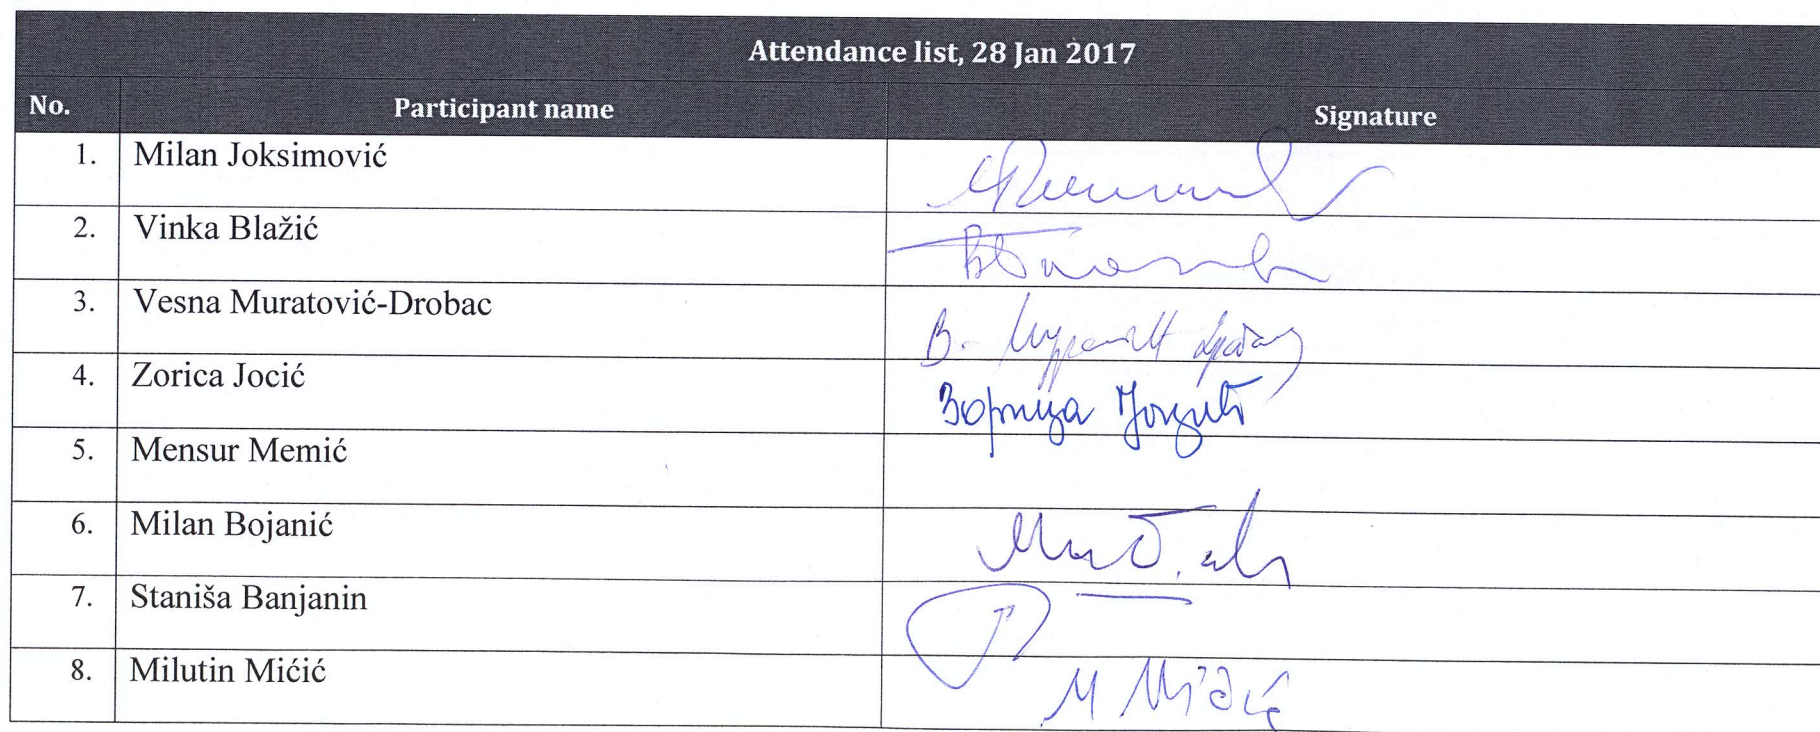 Attendance list, 28 Jan 2017
No. Participant name Signature
1. Milan Joksimović
2. Vinka Blažić
3. Vesna Muratović-Drobac В.
4. Zorica Jocić Зорица Јоцић
5. Mensur Memić
6. Milan Bojanić
7. Staniša Banjanin
8. Milutin Mićić M